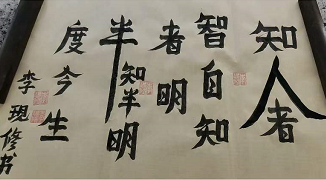 知人者
智自知
者明
半知半明
度今生
李现修书